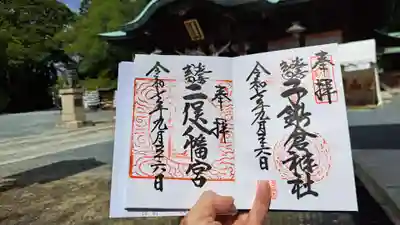 奉拝
子鍬倉神社
令和五年九月二十六日
奉拝
二俣八幡宮
令和五年九月二十六日